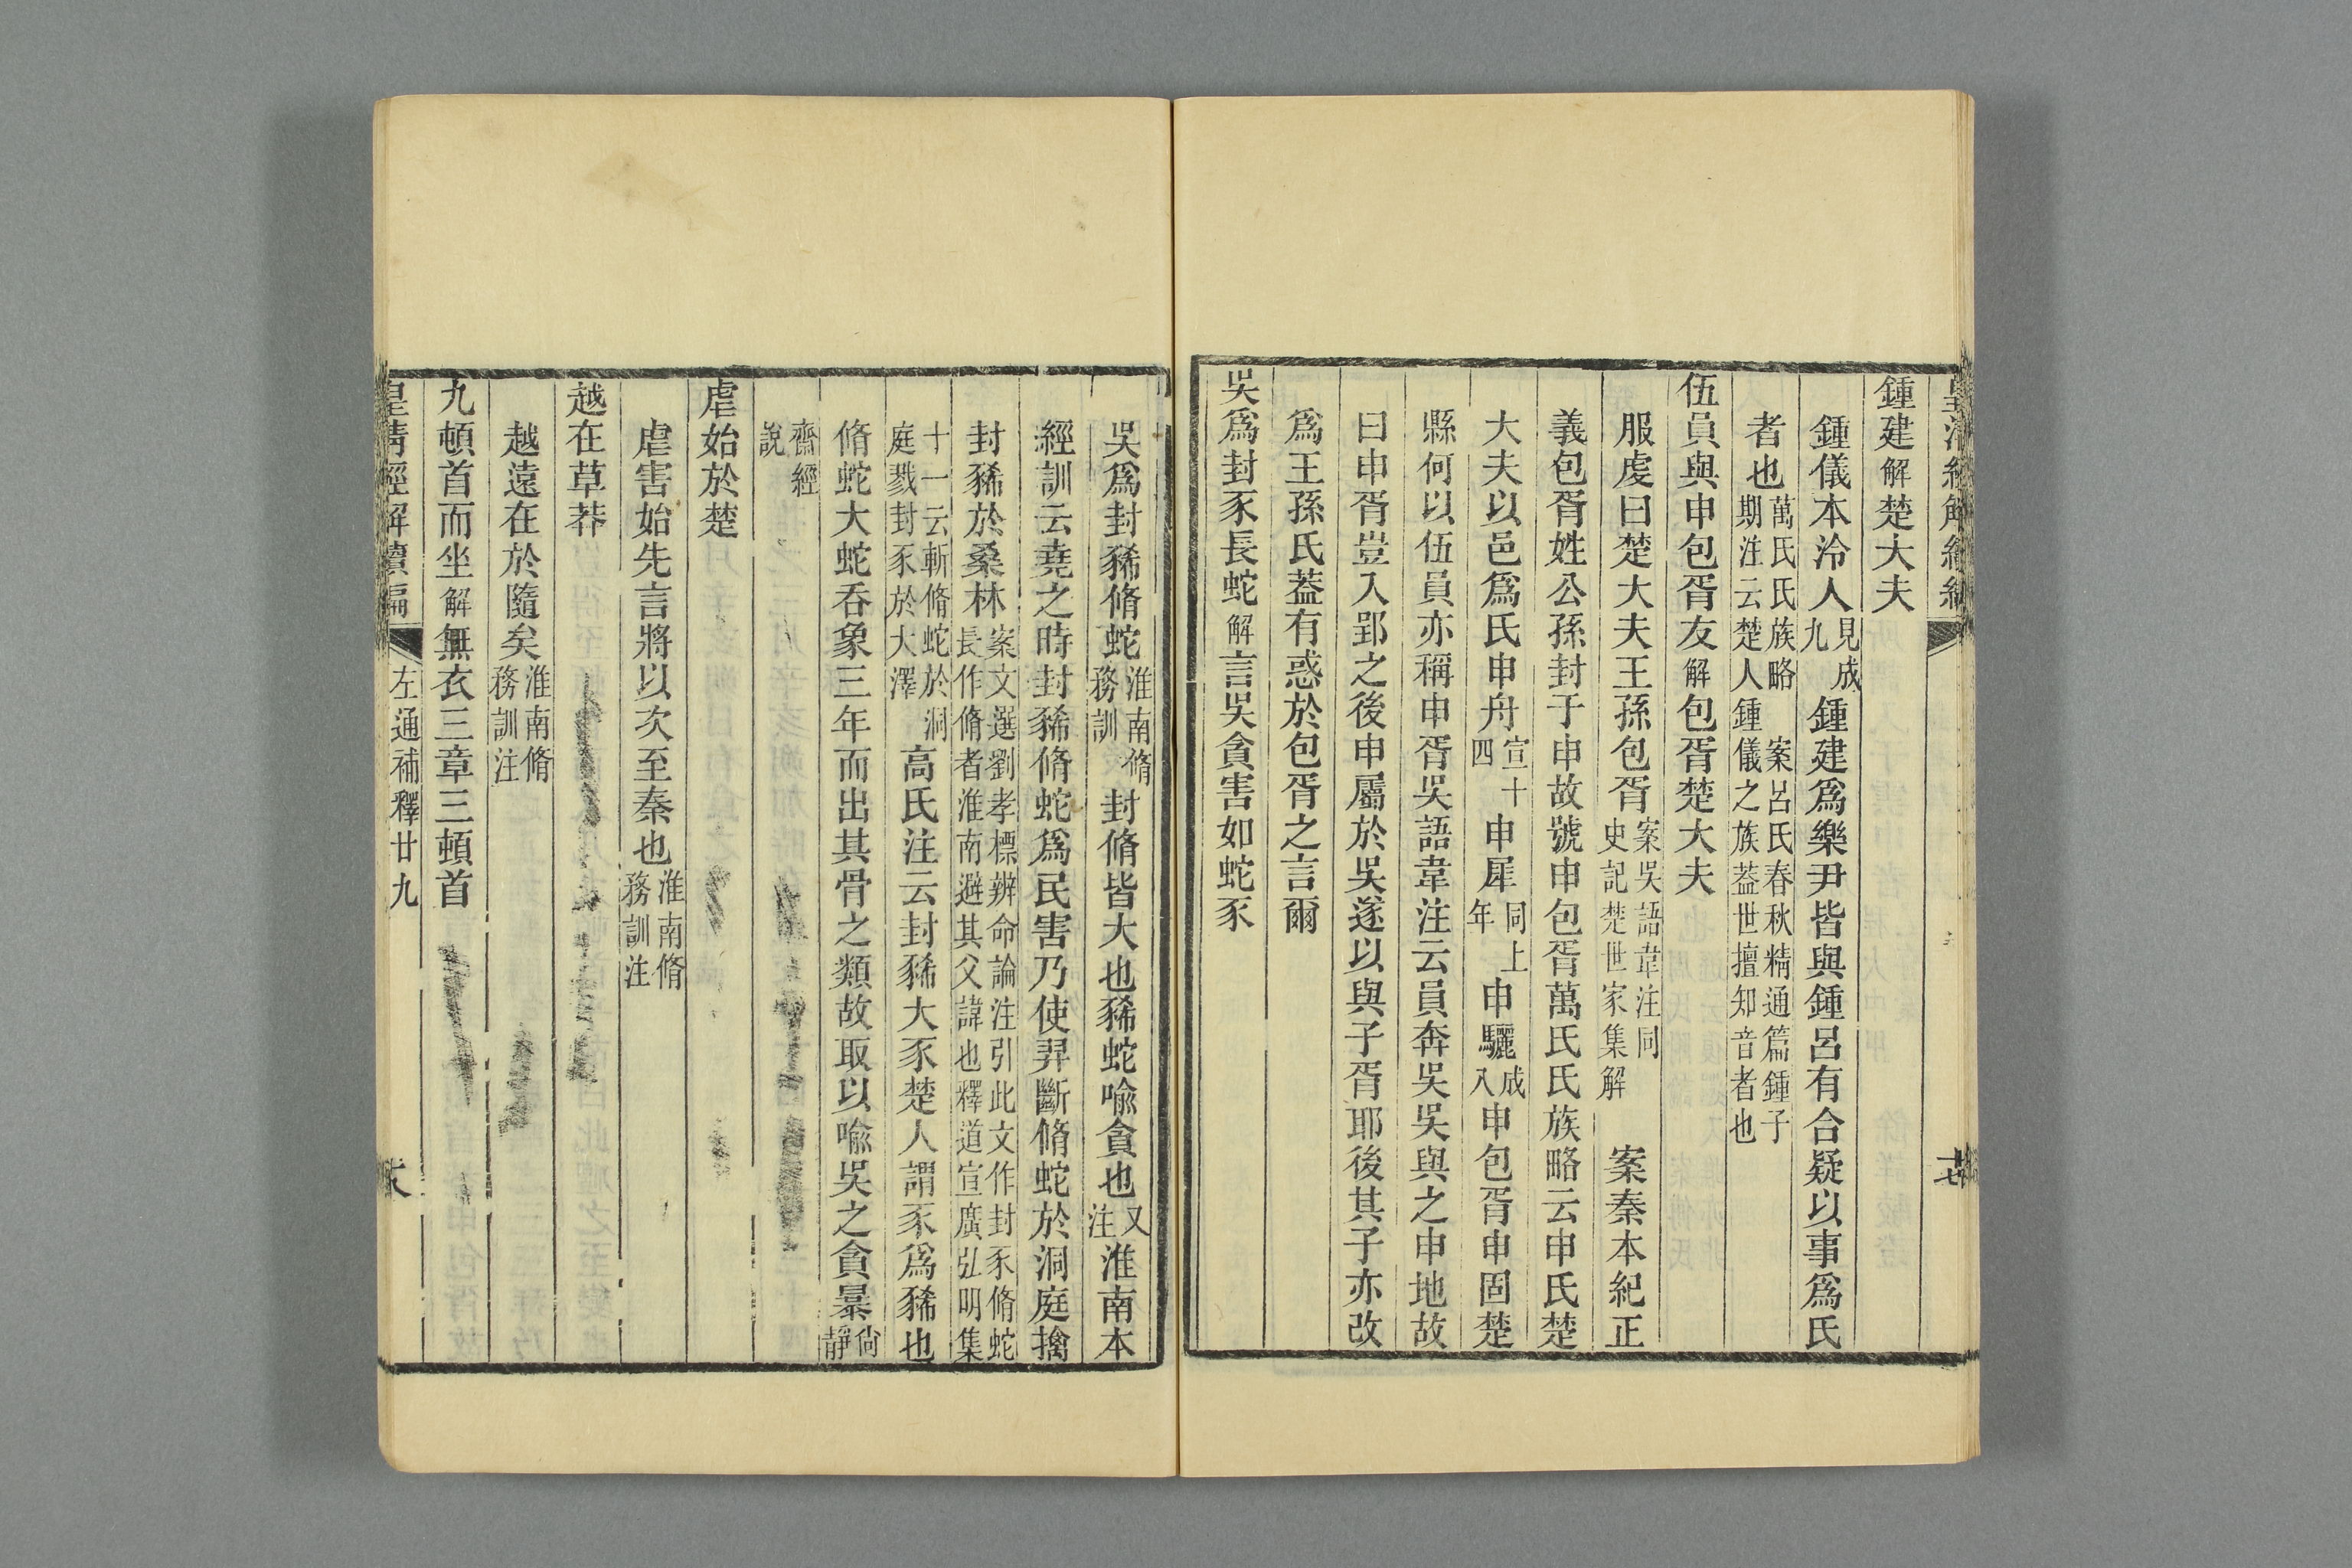 皇清經解續編
七
鍾建解楚大夫
鍾儀本泠人見成九鍾建爲樂尹皆與鍾呂有合疑以事爲氏
者也萬氏氏族略 案呂氏春秋精通篇鍾子期注云楚人鍾儀之族葢世擅知音者也
伍員與申包胥友解包胥楚大夫
服虔曰楚大夫王孫包胥案吳語韋注同史記楚世家集解 案秦本紀正
義包胥姓公孫封于申故號申包胥萬氏氏族略云申氏楚
大夫以邑爲氏申舟宣十四申犀同上年申驪成八申包胥申固楚
縣何以伍員亦稱申胥吳語韋注云員奔吳吳與之申地故
曰申胥豈入郢之後申屬於吳遂以與子胥耶後其子亦改
爲王孫氏葢有惑於包胥之言爾
吳爲封豕長蛇解言吳貪害如蛇豕
吳爲封豨脩蛇淮南脩務訓封脩皆大也豨蛇喩貪也又注淮南本
經訓云堯之時封豨脩蛇爲民害乃使羿斷脩蛇於洞庭擒
封豨於桑林案文選劉孝標辨命論注引此文作封豕脩蛇長作脩者淮南避其父諱也釋道宣廣弘明集
十一云斬脩蛇於洞庭戮封豕於大澤高氏注云封豨大豕楚人謂豕爲豨也
脩蛇大蛇吞象三年而出其骨之類故取以喩吳之貪暴尙靜
齋經說
虐始於楚
虐害始先言將以次至秦也淮南脩務訓注
越在草莽
越遠在於隨矣淮南脩務訓注
九頓首而坐解無衣三章三頓首
皇清經解續編
左通補釋廿九